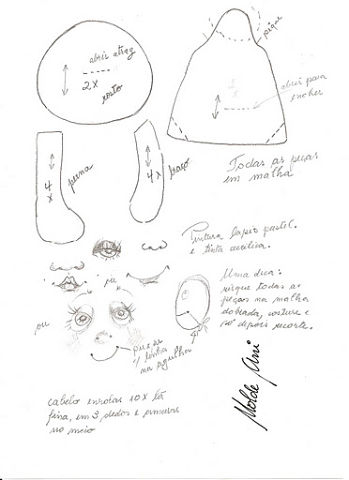 pique
abrir atraz
2X
rosto
abrir para
encher
4
X
perna
4
X
braço
Todas as peças
em malha
Pintura lapis pastel.
e tinta acrilica.
ou
Uma dica:
risque todas as
peças na malha
dobrada, costure e
só depois recorte.
ou
puxe
1 linha
na agulha
cabelo enrolar 10X lã
fina, em 3 dedos e amarrar
no meio
Molde Ani